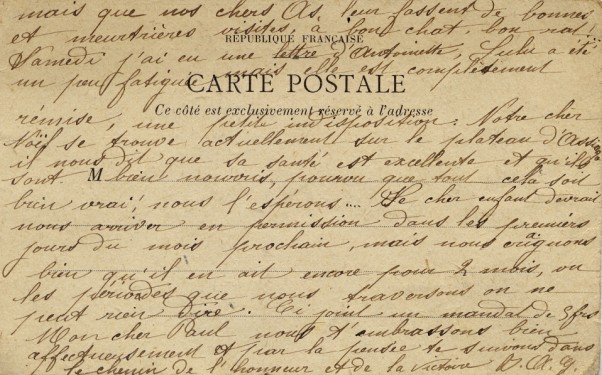 mais que nos chers As, leur fassent de bonnes
et meurtrières visites, à bon chat, bon rat...
RÉPUBLIQUE FRANÇAISE
Samedi j'ai eu une lettre d'Antoinette, Lulu a été
un peu fatiguée mais elle est complètement
CARTE POSTALE
Ce côté est exclusivement réservé à l'adresse
remise, une petite indisposition. Notre cher
se trouve actuellement sur le plateau
il nous dit que sa santé est excellente et qu'ils
sont
M
bien nourris, pourvu que tout cela soit
bien vrai! nous l'espérons.... Le cher enfant devrait
nous arriver en permission dans les premiers
jours du mois prochain, mais nous craignons
bien qu'il en ait encore pour 2 mois, vu
les périodes que nous traversons on ne
peut rien dire. Ci joint un mandat de 5 frs
Mon cher Paul nous t'embrassons bien
affectueusement et par la pensée te suivons dans
le chemin de l'honneur et de la victoire